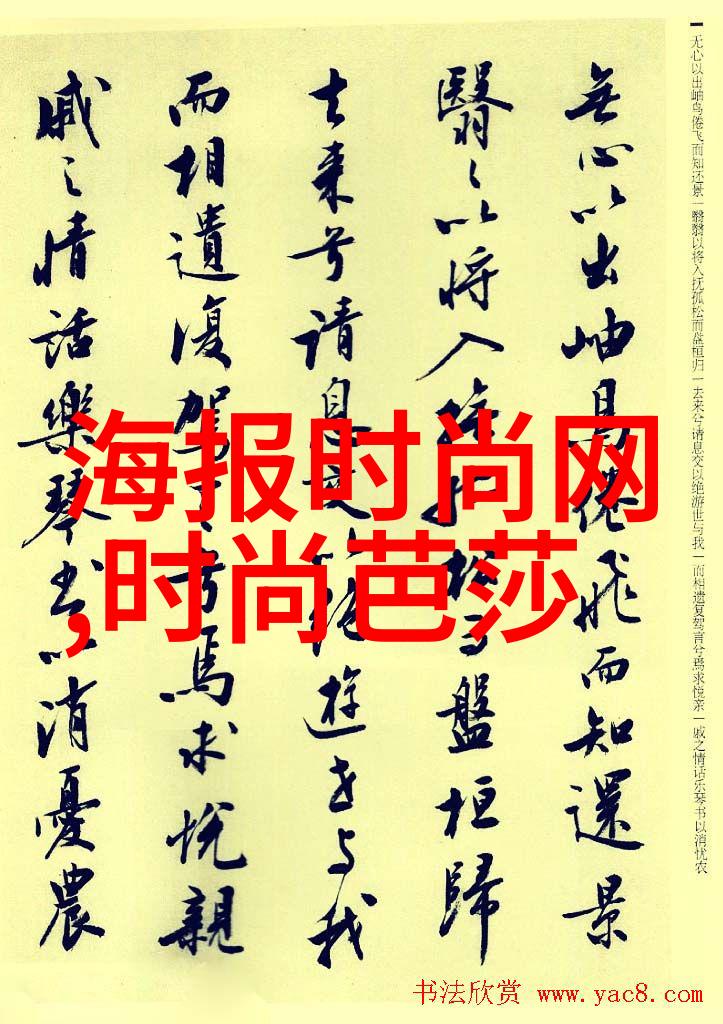 无心以出岫鸟倦飞而知还景|翳翳以将入抚孤松而盘桓归|去来兮请息交以绝游世与我|而相遗复驾言兮焉求悦亲|戚之情话乐琴书以消忧农
無心以出岫鳥倦飛而知還景
翳々以将入撫孤松而盤桓歸
去来兮请息交以绝遊世与我
而相遺復駕言兮焉求悦親
戚之情話樂琴書以消憂農
海报时尚网
,时尚芭莎
书法欣赏 www.yac8.com